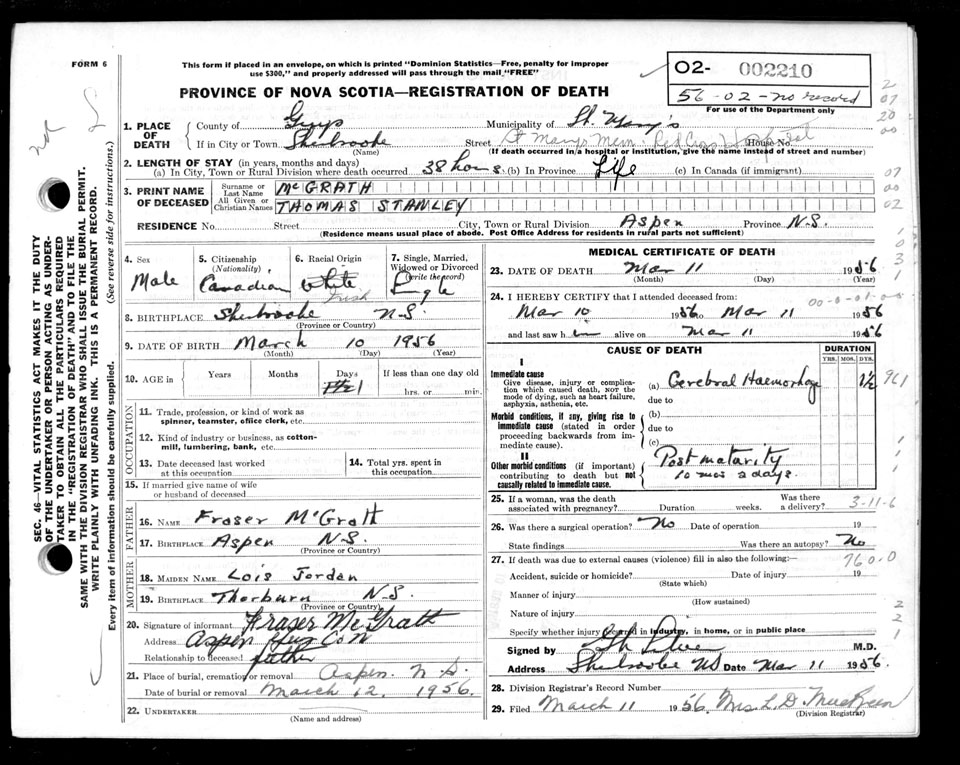 FORM 6
This form if placed in an envelope, on which is printed "Dominion Statistics—Free, penalty for improper
use $300," and properly addressed will pass through the mail "FREE"
02- 002210
56-02-no record
For use of the Department only
PROVINCE OF NOVA SCOTIA—REGISTRATION OF DEATH
SEC. 46—VITAL STATISTICS ACT MAKES IT THE DUTY
OF THE UNDERTAKER OR PERSON ACTING AS UNDER-
TAKER TO OBTAIN ALL THE PARTICULARS REQUIRED
IN THE "REGISTRATION OF DEATH" AND TO FILE THE
SAME WITH THE DIVISION REGISTRAR WHO SHALL ISSUE THE BURIAL PERMIT.
WRITE PLAINLY WITH UNFADING INK. THIS IS A PERMANENT RECORD.
Every item of information should be carefully supplied. (See reverse side for instructions.)
1. PLACE OF DEATH
County of Guys Municipality of St. Mary's
If in City or Town Sherbrooke Street St Marys Mem. Red Cross Hospital House No.
(Name) (If death occurred in a hospital or institution, give the name instead of street and number)
2. LENGTH OF STAY (in years, months and days)
(a) In City, Town or Rural Division where death occurred 38 hours (b) In Province Life (c) In Canada (if immigrant)
3. PRINT NAME OF DECEASED
Surname or Last Name McGRATH
All Given or Christian Names THOMAS STANLEY
RESIDENCE No. Street City, Town or Rural Division Aspen Province N.S.
(Residence means usual place of abode. Post Office Address for residents in rural parts not sufficient)
4. Sex Male
5. Citizenship (Nationality) Canadian
6. Racial Origin White Irish
7. Single, Married, Widowed or Divorced (write the word) Single
8. BIRTHPLACE Sherbrooke N.S.
(Province or Country)
9. DATE OF BIRTH March 10 1956
(Month) (Day) (Year)
10. AGE in Years Months Days 1 If less than one day old
hrs. or min.
OCCUPATION
11. Trade, profession, or kind of work as
spinner, teamster, office clerk, etc.
12. Kind of industry or business, as cotton-
mill, lumbering, bank, etc.
13. Date deceased last worked
at this occupation
14. Total yrs. spent in
this occupation
15. If married give name of wife
or husband of deceased
FATHER
16. NAME Fraser McGrath
17. BIRTHPLACE Aspen N.S.
(Province or Country)
MOTHER
18. MAIDEN NAME Lois Jordan
19. BIRTHPLACE Thorburn N.S.
(Province or Country)
20. Signature of informant Fraser McGrath
Address Aspen Guy Co N
Relationship to deceased father
21. Place of burial, cremation or removal Aspen. N S.
Date of burial or removal March 12, 1956.
22. UNDERTAKER
(Name and address)
MEDICAL CERTIFICATE OF DEATH
23. DATE OF DEATH Mar 11 1956
(Month) (Day) (Year)
24. I HEREBY CERTIFY that I attended deceased from:
Mar 10 1956 to Mar 11 1956
and last saw him alive on Mar 11 1956
CAUSE OF DEATH
DURATION
YRS. MOS. DYS.
I
Immediate cause
Give disease, injury or complica-
tion which caused death, NOT the
mode of dying, such as heart failure,
asphyxia, asthenia, etc.
(a) Cerebral Haemorrhage 1½
due to
Morbid conditions, if any, giving rise to
immediate cause (stated in order
proceeding backwards from im-
mediate cause).
(b)
due to
(c)
II
Other morbid conditions (if important)
contributing to death but not
causally related to immediate cause.
Postmaturity
10 mos 2 days.
25. If a woman, was the death
associated with pregnancy? Duration weeks. Was there a delivery?
3-11-6
26. Was there a surgical operation? No Date of operation 19
State findings Was there an autopsy? No
27. If death was due to external causes (violence) fill in also the following:— 760.0
Accident, suicide or homicide? Date of injury 19
(State which)
Manner of injury
(How sustained)
Nature of injury
Specify whether injury occurred in industry, in home, or in public place
Signed by M.D.
Address Sherbrooke NS Date Mar 11 1956.
28. Division Registrar's Record Number
29. Filed March 11 1956. Mrs. L. D. MacKeen
(Division Registrar)